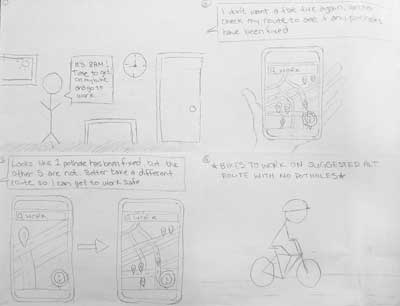 IT'S 8AM!
Time to get
on my bike
and go to
work.
I don't want a flat tire again, let me
check my route to see if any potholes
have been fixed
work
Looks like 1 pothole has been fixed, but the
other 5 are not. Better take a different
route so I can get to work safe
work
work
*BIKES TO WORK ON SUGGESTED ALT
ROUTE WITH NO POTHOLES*